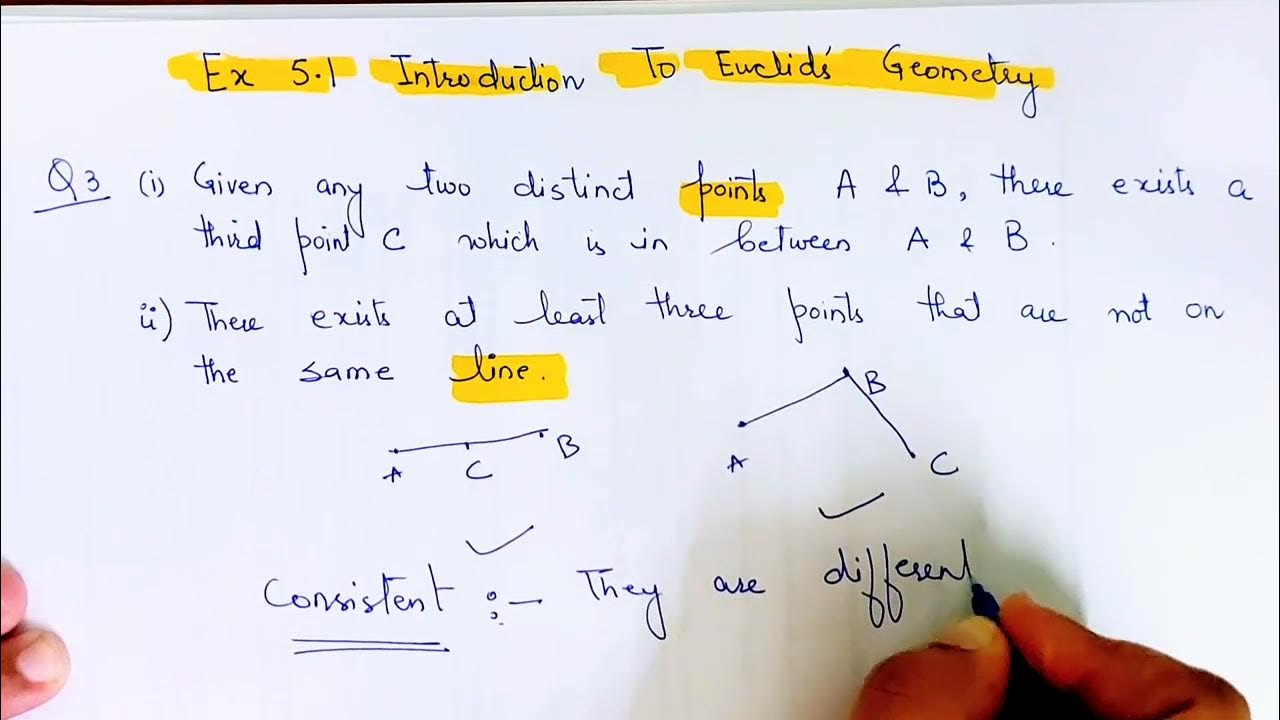 Ex 5.1 Introduction To Euclid's Geometry
Q3 (i) Given any two distinct points A & B, there exists a
third point C which is in between A & B.
ii) There exists at least three points that are not on
the same line.
A C B
A B C
Consistent :- They are different